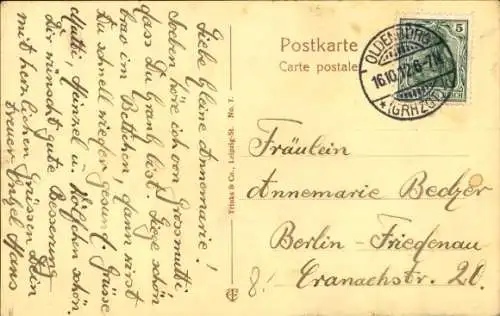 Liebe kleine Annemarie!
Soeben höre ich von Grossmutti,
dass Du krank bist. Liege schön
brav im Bettchen, dann wirst
Du schnell wieder gesund. Grüsse
Mutti, Heinzel u. Wölfchen schön.
Dir wünscht gute Besserung
mit herzlichen Grüssen Dein
treuer Onkel Hans
Trinks & Co., Leipzig-St. No. 7.
Postkarte
Carte postale
OLDENBURG
16.10.12. 6-7N
*(GRHZGT.)
5
Fräulein
Annemarie Bedzer
Berlin-Friedenau
8. Cranachstr. 20.